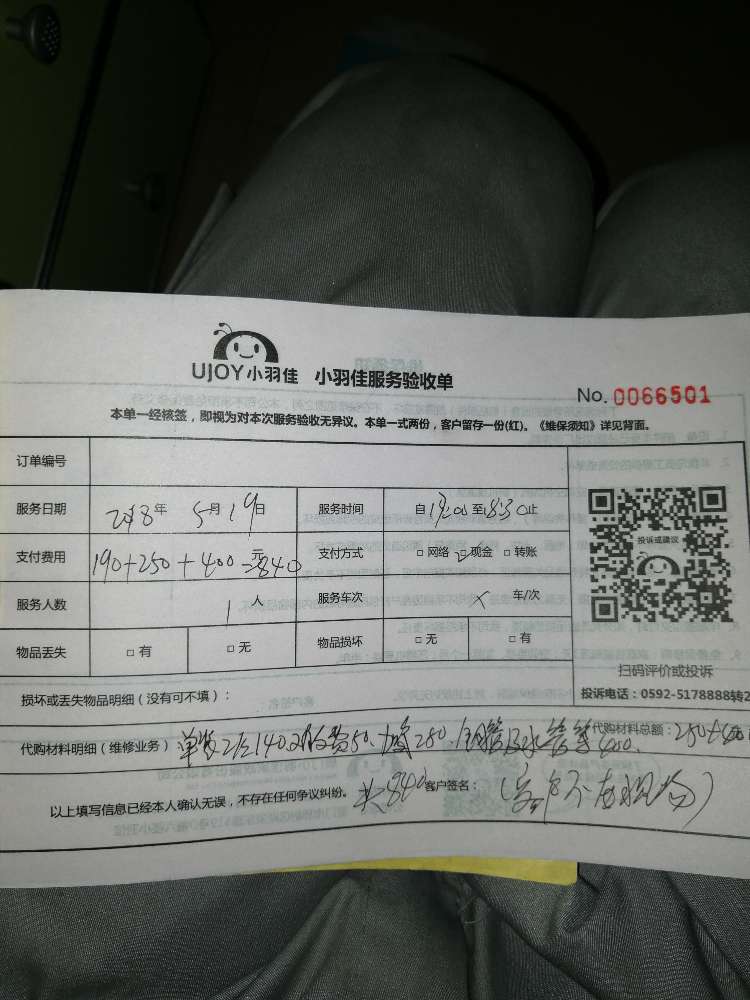 UJOY小羽佳 小羽佳服务验收单
No. 0066501
本单一经核签，即视为对本次服务验收无异议。本单一式两份，客户留存一份(红)。《维保须知》详见背面。
订单编号
服务日期 2018年 5月19日 服务时间 自 至 止
支付费用 190+250+400=840元 支付方式 □网络 ☑现金 □转账
服务人数 1人 服务车次 × 车/次
物品丢失 □有 □无 物品损坏 □无 □有
投诉或建议
扫码评价或投诉
投诉电话：0592-5178888转2
损坏或丢失物品明细（没有可不填）：
代购材料明细（维修业务） 250. 水管等400. 代购材料总额：250+400
以上填写信息已经本人确认无误，不存在任何争议纠纷。 共840 客户签名：（客户不在现场）